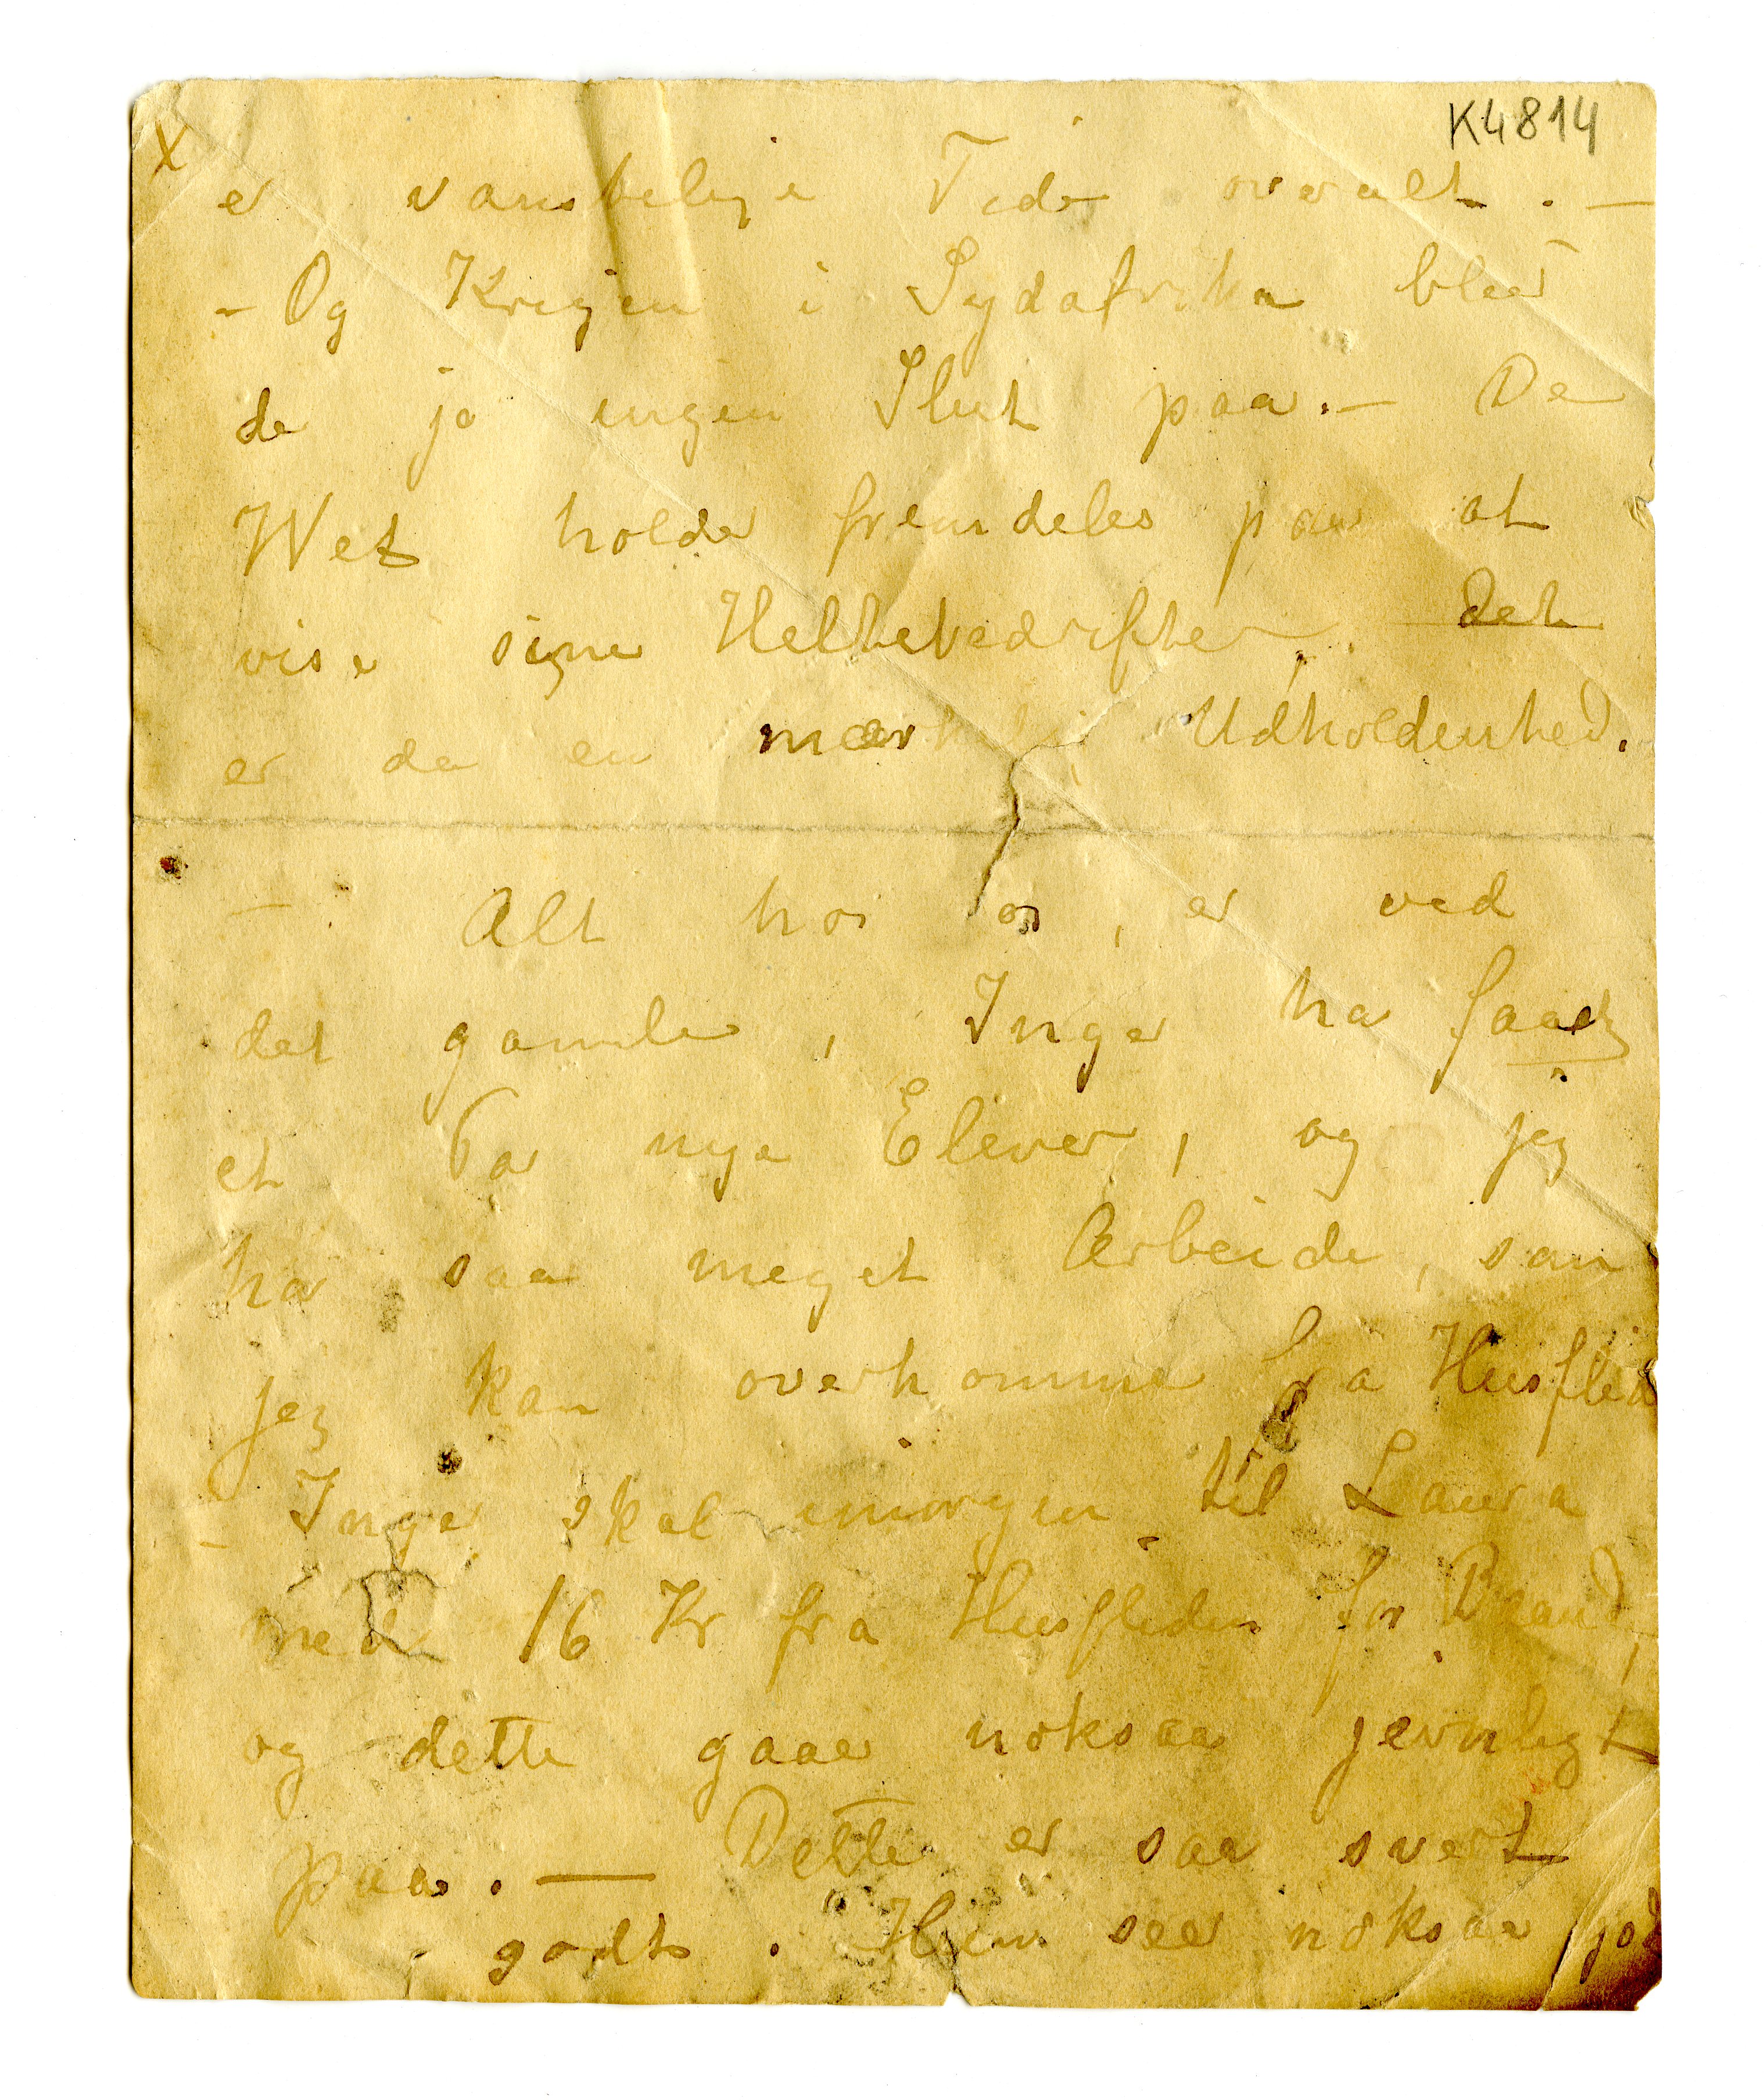 K4814
X
er vanskelige Tider overalt. —
- Og Krigen i Sydafrika bler
de jo ingen Slut paa. — De
Wet holder fremdeles paa at
vise sine Heltebedrifter, det
er da en mærkelig Udholdenhed.
— Alt hos os, er ved
det gamle, Inger har faaet
et Par nye Elever, og jeg
har saa meget Arbeide, som
jeg kan overkomme fra Husflid
- Inger skal imorgen til Laura
med 16 Kr fra Husfliden for Baand,
og dette gaar noksaa jevnligt
paa. — Dette er saa svært
godt. Hun seer noksaa god